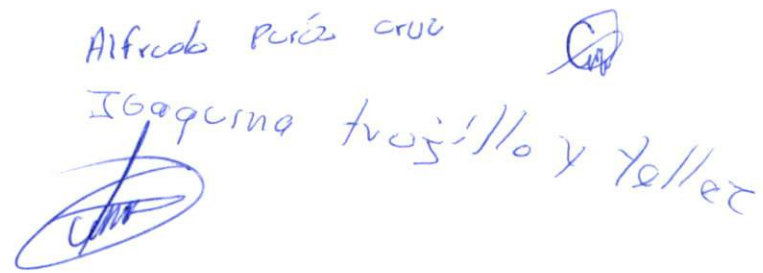 Alfredo Peréz cruz
Ioaquina trujillo y Yellez